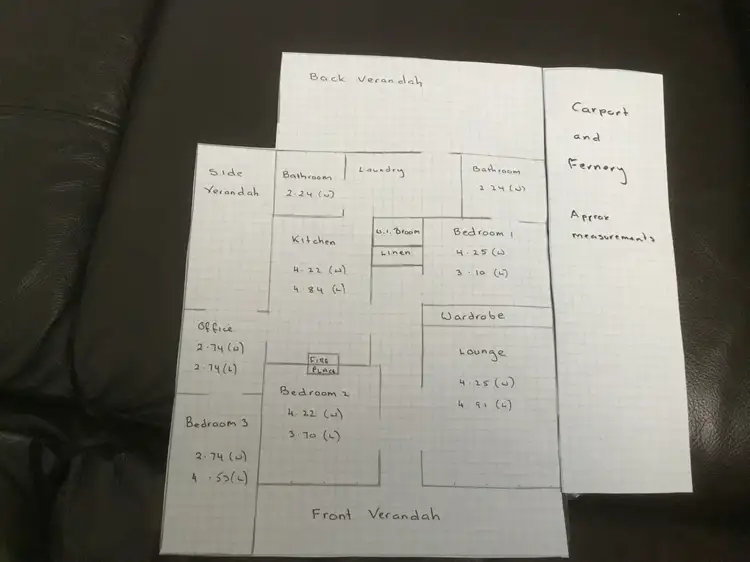 Back Verandah
Carport
and
Fernery
Approx
measurements
Side
Verandah
Bathroom
2.24 (W)
Laundry
Bathroom
2.24 (W)
Kitchen
4.22 (W)
4.84 (L)
Broom
Linen
Bedroom 1
4.25 (W
3.10 (L)
Wardrobe
Office
2.74 (W)
2.74 (L)
Fire
Place
Lounge
4.25 (W)
(L)
Bedroom 2
4.22 (W)
3.70 (L)
Bedroom 3
2.74 (W)
4.53 (L)
Front Verandah